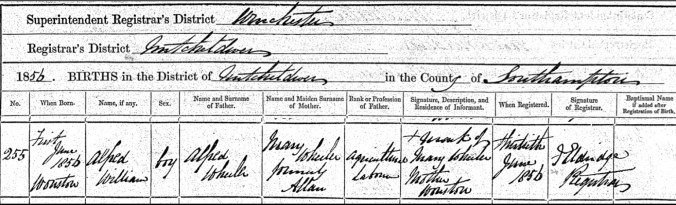 Superintendent Registrar's District Winchester
Registrar's District Mitcheldever
1856. BIRTHS in the District of Mitcheldever in the County of Southampton
No. When Born. Name, if any. Sex. Name and Surname of Father. Name and Maiden Surname of Mother. Rank or Profession of Father. Signature, Description, and Residence of Informant. When Registered. Signature of Registrar. Baptismal Name if added after Registration of Birth.
255 First June 1856 Wonston
Alfred William
boy
Alfred Wheeler
Mary Wheeler formerly Allan
Agricultural Laborer
X mark of Mary Wheeler Mother Wonston
Thirtieth June 1856
J Eldridge Registrar